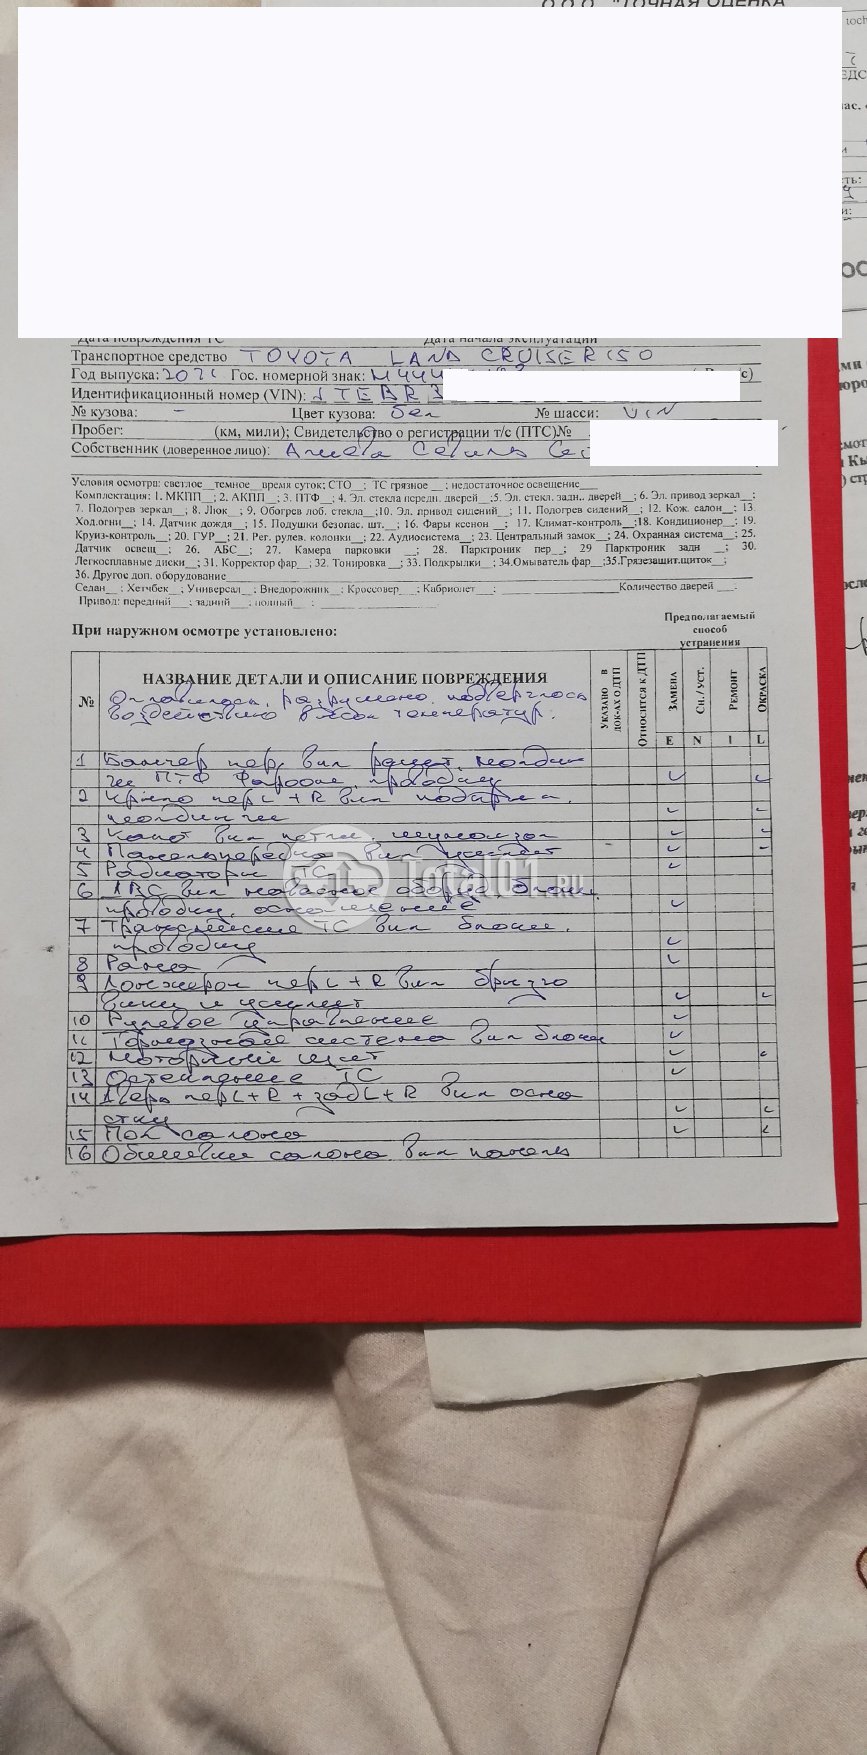 О.О.О. "ТОЧНАЯ ОЦЕНКА
Транспортное средство TOYOTA LAND CRUISER 150
Год выпуска: 2021 Гос. номерной знак: М444
Идентификационный номер (VIN): JTEBR3
№ кузова: - Цвет кузова: бел № шасси: VIN
Пробег: (км, мили); Свидетельство о регистрации т/с (ПТС)№
Собственник (доверенное лицо):
Условия осмотра: светлое__темное__время суток; СТО__; ТС грязное__; недостаточное освещение___
Комплектация: 1. МКПП__; 2. АКПП__; 3. ПТФ__; 4. Эл. стекла передн. дверей__; 5. Эл. стекл. задн.. дверей__; 6. Эл. привод зеркал__;
7. Подогрев зеркал__; 8. Люк__; 9. Обогрев лоб. стекла__; 10. Эл. привод сидений__; 11. Подогрев сидений__; 12. Кож. салон__; 13.
Ход.огни__; 14. Датчик дождя__; 15. Подушки безопас. шт.__; 16. Фары ксенон__; 17. Климат-контроль__; 18. Кондиционер__; 19.
Круиз-контроль__; 20. ГУР__; 21. Рег. рулев. колонки__; 22. Аудиосистема__; 23. Центральный замок__; 24. Охранная система__; 25.
Датчик освещ__; 26. АБС__; 27. Камера парковки__; 28. Парктроник пер__; 29 Парктроник задн__; 30.
Легкосплавные диски__; 31. Корректор фар__; 32. Тонировка__; 33. Подкрылки__; 34.Омыватель фар__; 35.Грязезащит.щиток__;
36. Другое доп. оборудование
Седан__; Хетчбек__; Универсал__; Внедорожник__; Кроссовер__; Кабриолет__; Количество дверей___.
Привод: передний__; задний__; полный__;
При наружном осмотре установлено:
Предполагаемый способ устранения
№ НАЗВАНИЕ ДЕТАЛИ И ОПИСАНИЕ ПОВРЕЖДЕНИЯ УКАЗАНО В ДОК-АХ О ДТП ОТНОСИТСЯ К ДТП ЗАМЕНА СН. / УСТ. РЕМОНТ ОКРАСКА
Оплавилось, разрушено, подверглось
воздействию высок температур.
E N I L
1 Бампер пер, вкл решет, молдин
ги ПТФ Фароом, проводку
2 Крыло пер L + R вкл подкрыл,
молдинги
3 Капот вкл петли, шумоизол
4 Панель передка вкл усилит
5 Радиаторы ТС
6 ДВС вкл навесное оборуд блоки,
проводку, оснащение
7 Трансмиссия ТС вкл блоки,
проводку
8 Рама
9 Лонжерон пер L + R вкл брызго
вики и усилит
10 Рулевое управление
11 Тормозная система вкл блоки
12 Моторный щит
13 Остекление ТС
14 Дверь пер L + R + зад L + R вкл осна
стку
15 Пол салона
16 Обшивки салона вкл панель
Total01.RU